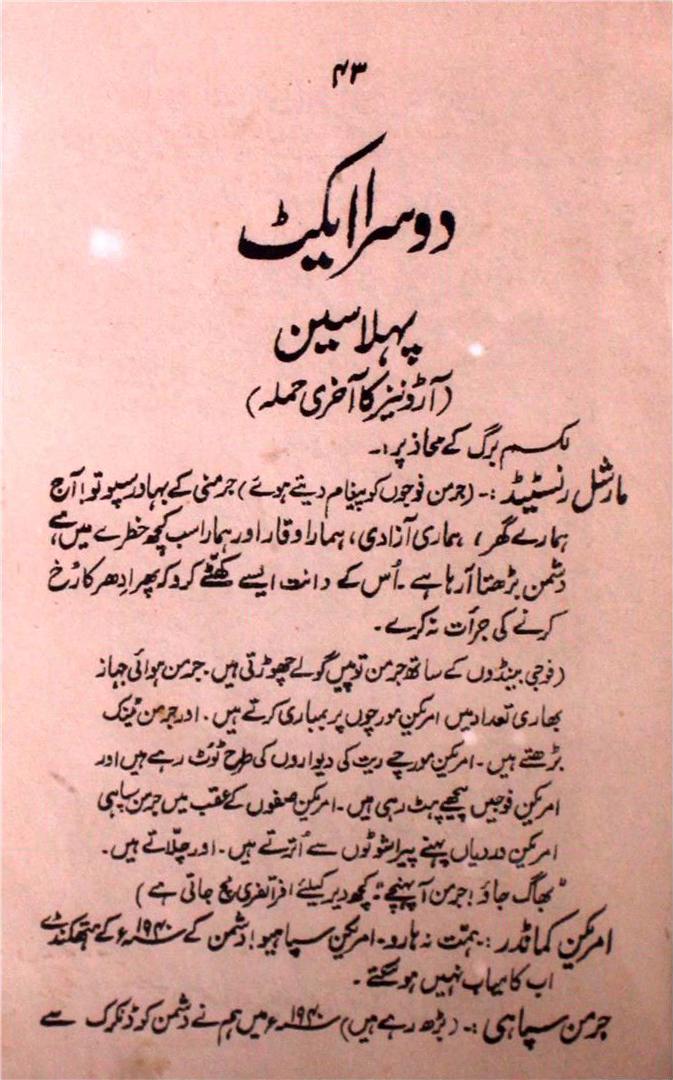 ۴۳
دوسرا ایکٹ
پہلا سین
(آرڈنیز کا آخری حملہ)
لکسم برگ کے محاذ پر:۔
مارشل رنسٹیڈ:۔ (جرمن فوجوں کو پیغام دیتے ہوئے) جرمنی کے بہادر سپوتو! آج
ہمارے گھر، ہماری آزادی، ہمارا وقار اور ہمارا سب کچھ خطرے میں ہے
دشمن بڑھتا آرہا ہے۔ اُس کے دانت ایسے کھٹّے کرو کہ پھر اِدھر کا رُخ
کرنے کی جرأت نہ کرے۔
(فوجی بینڈوں کے ساتھ جرمن توپیں گولے چھوڑتی ہیں۔ جرمن ہوائی جہاز
بھاری تعداد میں امریکن مورچوں پر بمباری کرتے ہیں۔ اور جرمن ٹینک
بڑھتے ہیں۔ امریکن مورچے ریت کی دیواروں کی طرح ٹوٹ رہے ہیں اور
امریکن فوجیں پیچھے ہٹ رہی ہیں۔ امریکن صفوں کے عقب میں جرمن سپاہی
امریکن وردیاں پہنے پیراشوٹوں سے اُترتے ہیں۔ اور چلّاتے ہیں۔
"بھاگ جاؤ! جرمن آپہنچے"۔ کچھ دیر کیلئے افراتفری مچ جاتی ہے)
امریکن کمانڈر:۔ ہمّت نہ ہارو۔ امریکن سپاہیو! دشمن کے ۱۹۴۰ء کے ہتھکنڈے
اب کامیاب نہیں ہوسکتے۔
جرمن سپاہی:۔ (بڑھ رہے ہیں) ۱۹۴۰ء میں ہم نے دشمن کو ڈنکرک سے